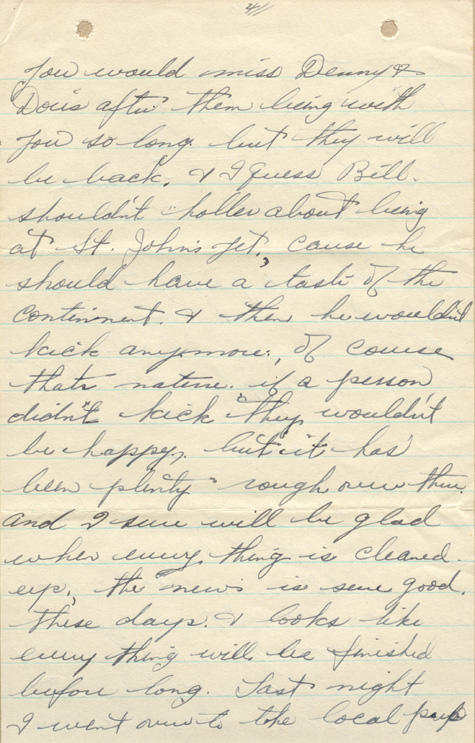 4/
You would miss Denny &
Doris after them being with
you so long. but they will
be back. & I guess Bill.
shouldn't holler about being
at St. John's yet, cause he
should have a taste of the
continment. & then he wouldnt
kick anymore, of course
thats nature. if a person
didn't kick they wouldn't
be happy, but it has
been plenty rough over there.
and I sure will be glad
when every thing is cleared
up, the news is sure good.
these days. & looks like
every thing will be finished
before long. Last night
I went over to the local pub